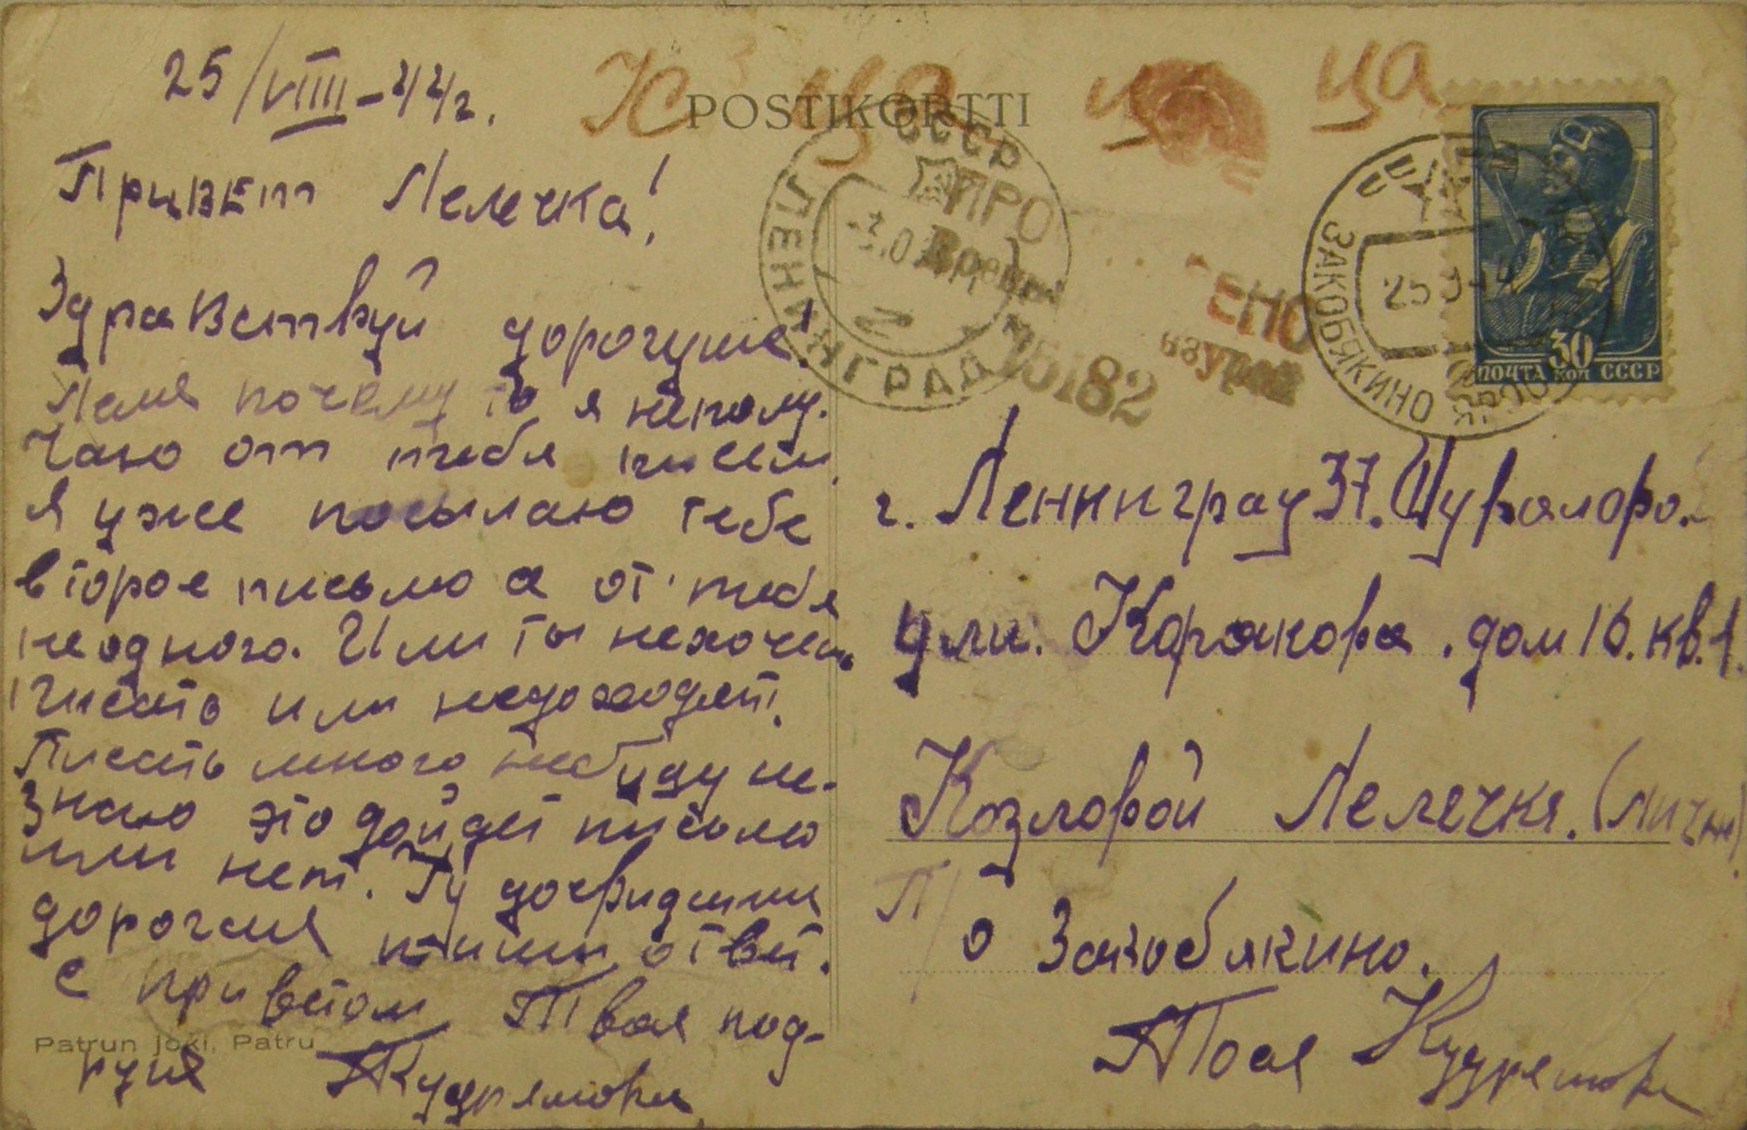 25/VIII-44г.
Привет Лелечка!
Здравствуй дорогуша!
Леля почему то я неполу-
чаю от тебя писем
Я уже посылаю тебе
второе письмо а от тебя
неодного. Или ты нехочеш
писать или недоходят.
Писать много небуду не-
знаю это дойдет письмо
или нет. Ну досвидания
дорогая пиши ответ.
С приветом Твоя под-
руга Кудряшова
Patrun joki, Patru
POSTIKORTTI
СССР
ЛЕНИНГРАД
ПРО ЕНО
Военной цензурой
15182
ЗАКОБЯКИНО
25
30
ПОЧТА КОП СССР
г. Ленинград 37.
ули. Корякова. дом 16. кв. 1.
Козловой Лелечке. (лично)
П/о Закобякино.
Тося Кудряшова